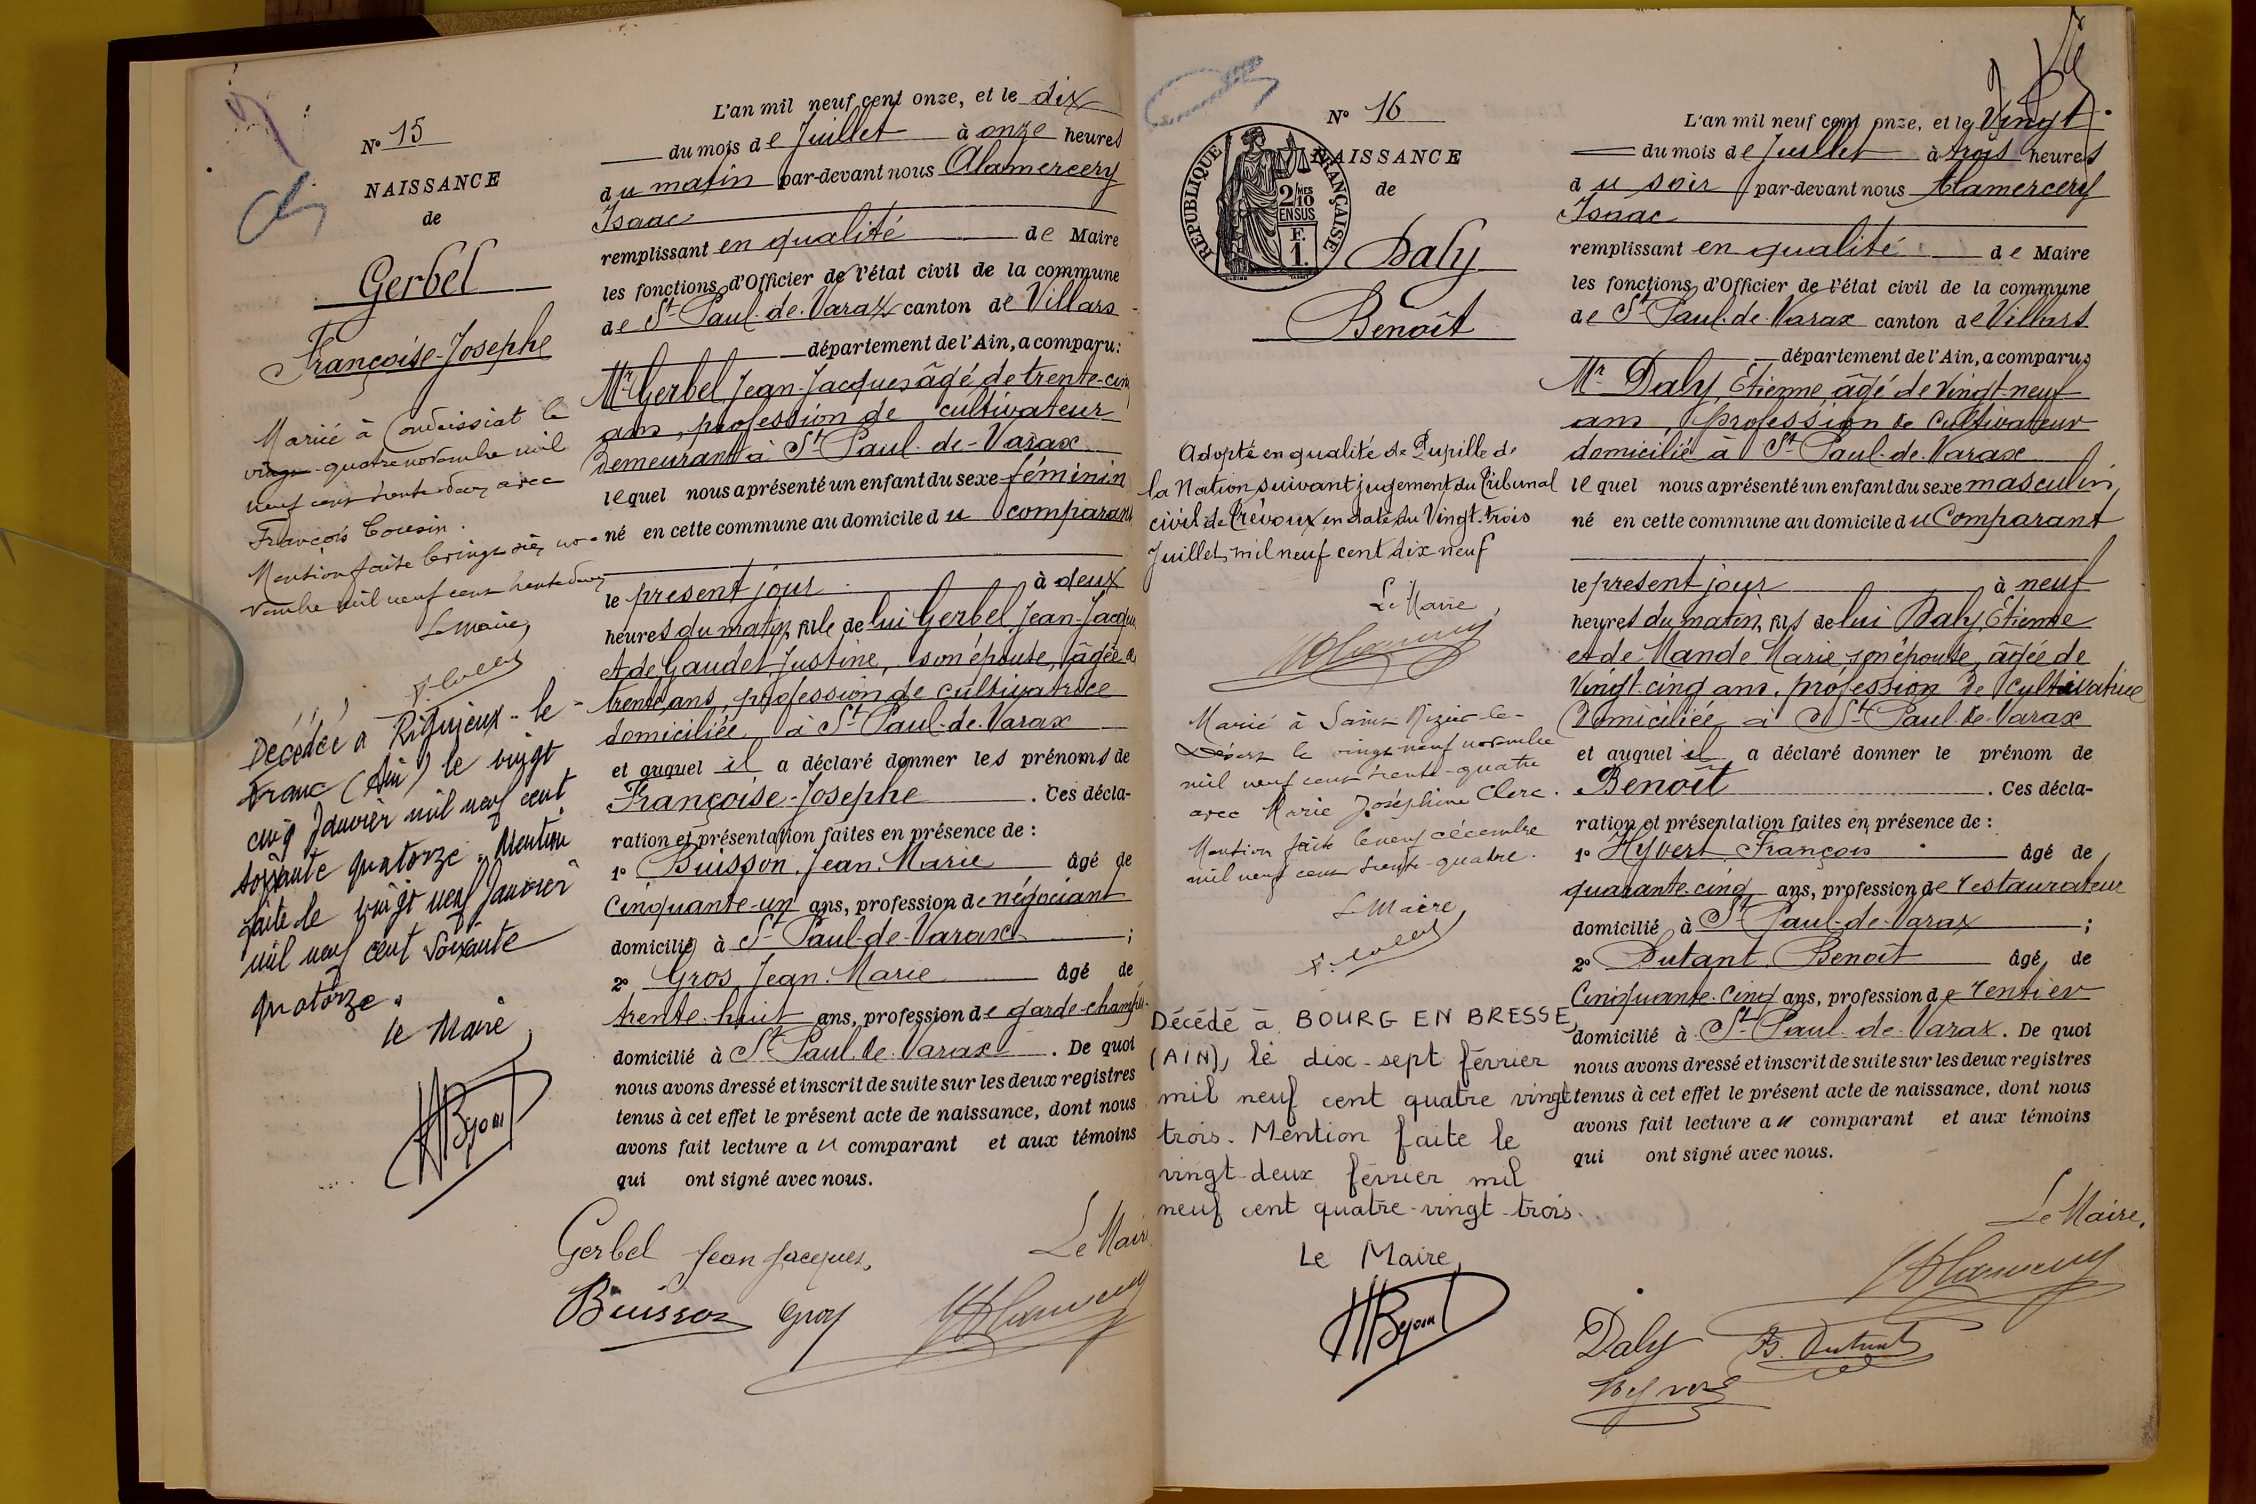 N° 15
NAISSANCE
de
Gerbel
Françoise-Josephe
Mariée à Condeissiat le
vingt-quatre novembre mil
neuf cent trente-deux avec
François Cousin.
Mention faite le vingt six no-
vembre mil neuf cent trente deux
Le Maire,
Décédée à Rignieux-le-
Franc (Ain) le vingt
cinq Janvier mil neuf cent
soixante quatorze. Mention
faite le vingt neuf Janvier
mil neuf cent soixante
quatorze.
Le Maire,
L'an mil neuf cent onze, et le dix
du mois de Juillet à onze heures
du matin par-devant nous Alamercery
Isaac
remplissant en qualité de Maire
les fonctions d'Officier de l'état civil de la commune
de St Paul-de-Varax canton de Villars
département de l'Ain, a comparu:
Mr Gerbel Jean-Jacques âgé de trente-cinq
ans, profession de cultivateur
demeurant à St Paul-de-Varax
lequel nous a présenté un enfant du sexe féminin
né en cette commune au domicile du comparant
le présent jour à deux
heures du matin, fille de lui Gerbel Jean-Jacques
et de Gaudet Justine, son épouse, âgée de
trente ans, profession de cultivatrice
domiciliée à St Paul-de-Varax
et auquel il a déclaré donner les prénoms de
Françoise-Josephe. Ces décla-
ration et présentation faites en présence de :
1° Buisson, Jean-Marie âgé de
cinquante-un ans, profession de négociant
domicilié à St Paul-de-Varax ;
2° Gros, Jean-Marie âgé de
trente-huit ans, profession de garde-champêtre
domicilié à St Paul-de-Varax. De quoi
nous avons dressé et inscrit de suite sur les deux registres
tenus à cet effet le présent acte de naissance, dont nous
avons fait lecture au comparant et aux témoins
qui ont signé avec nous.
Gerbel Jean Jacques,
Le Maire
Buisson Gros
N° 16
RÉPUBLIQUE FRANÇAISE
2/10 MES
EN SUS
F.
1.
NAISSANCE
de
Daly
Benoît
Adopté en qualité de Pupille de
la Nation suivant jugement du Tribunal
civil de Trévoux en date du Vingt-trois
Juillet mil neuf cent dix neuf
Le Maire,
Marié à Saint Nizier-le-
Désert le vingt neuf novembre
mil neuf cent trente-quatre
avec Marie Joséphine Clerc.
Mention faite le neuf décembre
mil neuf cent trente-quatre.
Le Maire
Décédé à BOURG EN BRESSE,
(AIN), le dix-sept février
mil neuf cent quatre vingt
trois. Mention faite le
vingt-deux février mil
neuf cent quatre-vingt-trois.
Le Maire,
L'an mil neuf cent onze, et le Vingt
du mois de Juillet à trois heures
du soir par-devant nous Alamercery
Isaac
remplissant en qualité de Maire
les fonctions d'Officier de l'état civil de la commune
de St Paul-de-Varax canton de Villars
département de l'Ain, a comparu,
Mr Daly, Étienne, âgé de vingt-neuf
ans, profession de cultivateur
domicilié à St Paul-de-Varax
lequel nous a présenté un enfant du sexe masculin
né en cette commune au domicile du Comparant
le présent jour à neuf
heures du matin, fils de lui Daly, Étienne
et de Mande Marie son épouse, âgée de
Vingt-cinq ans, profession de cultivatrice
domiciliée à St Paul-de-Varax
et auquel il a déclaré donner le prénom de
Benoît. Ces décla-
ration et présentation faites en présence de :
1° Hyvert, François âgé de
quarante-cinq ans, profession de restaurateur
domicilié à St Paul-de-Varax ;
2° Dutant, Benoît âgé de
Cinquante-cinq ans, profession de rentier
domicilié à St Paul-de-Varax. De quoi
nous avons dressé et inscrit de suite sur les deux registres
tenus à cet effet le présent acte de naissance, dont nous
avons fait lecture au comparant et aux témoins
qui ont signé avec nous.
Le Maire,
Daly B. Dutant